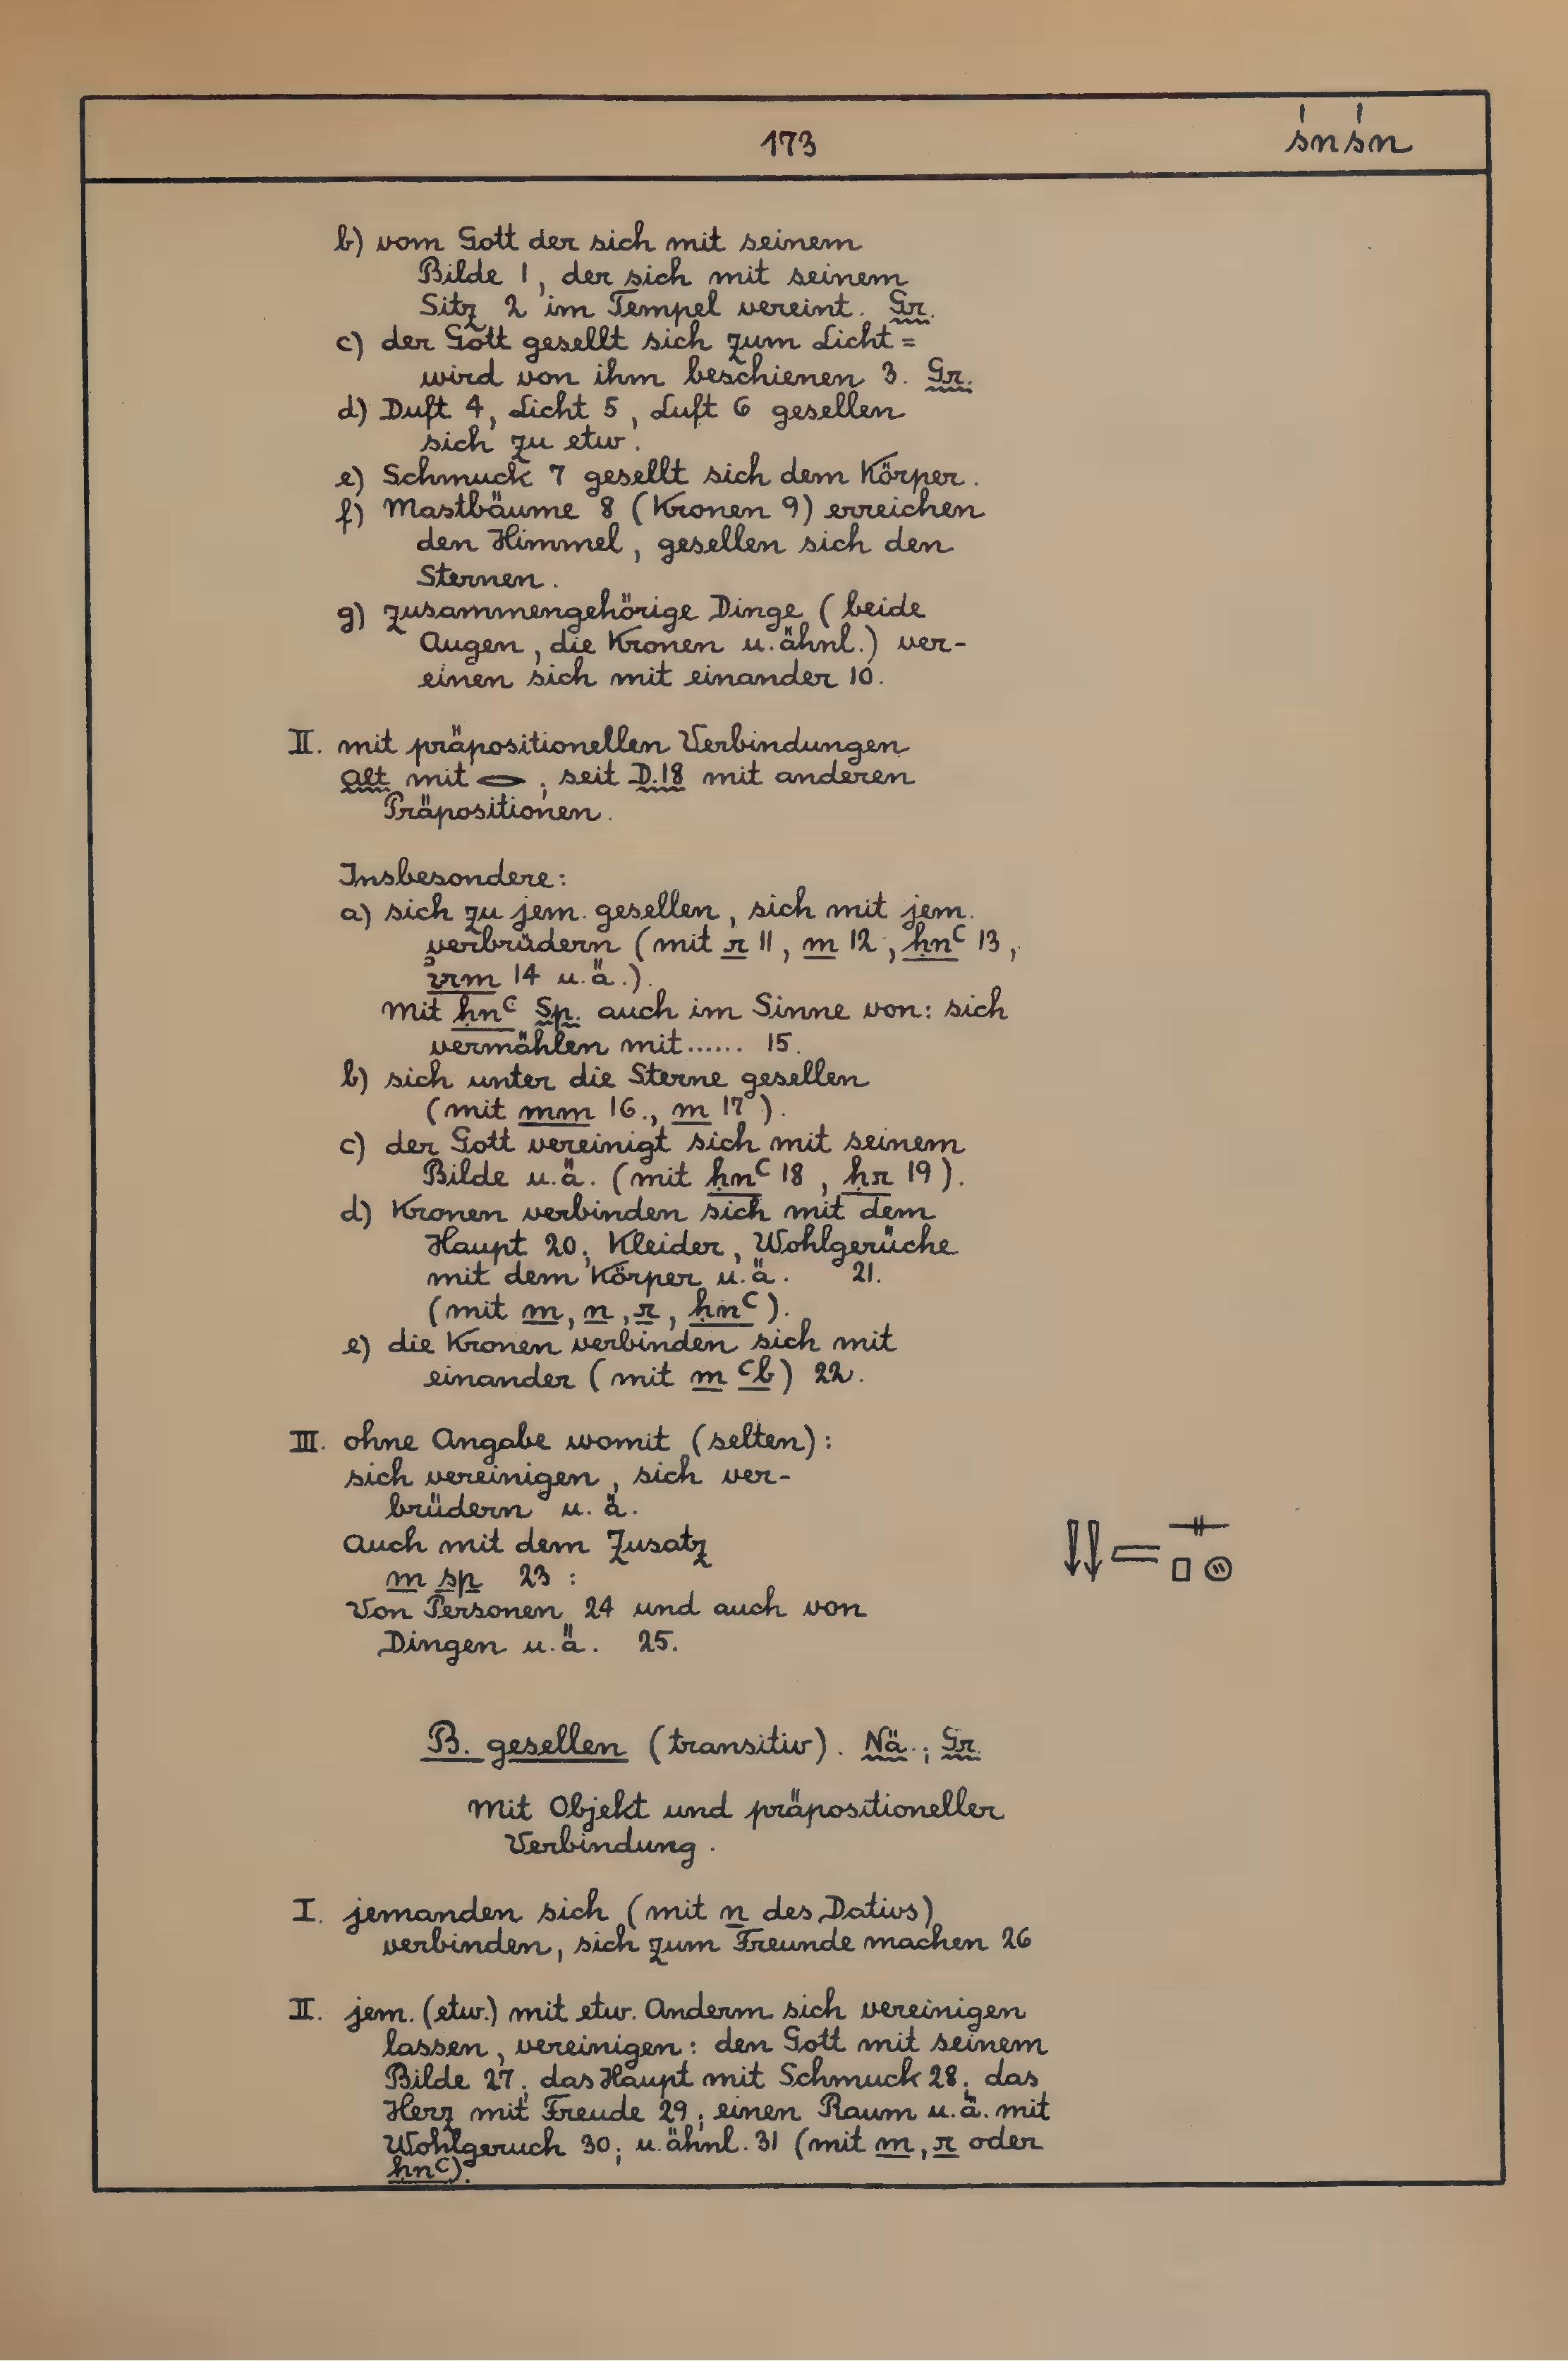 173
śnśn
b) vom Gott der sich mit seinem
Bilde 1, der sich mit seinem
Sitz 2 im Tempel vereint. Gr.
c) der Gott gesellt sich zum Licht =
wird von ihm beschienen 3. Gr.
d) Duft 4, Licht 5, Luft 6 gesellen
sich zu etw.
e) Schmuck 7 gesellt sich dem Körper.
f) Mastbäume 8 (Kronen 9) erreichen
den Himmel, gesellen sich den
Sternen.
g) zusammengehörige Dinge (beide
Augen, die Kronen u. ähnl.) ver-
einen sich mit einander 10.
II. mit präpositionellen Verbindungen
alt mit 𓂋; seit D.18 mit anderen
Präpositionen.
Insbesondere:
a) sich zu jem. gesellen, sich mit jem.
verbrüdern (mit r 11, m 12, ḥnꜥ 13,
ꞽrm 14 u.ä.).
Mit ḥnꜥ Sp. auch im Sinne von: sich
vermählen mit...... 15.
b) sich unter die Sterne gesellen
(mit mm 16., m 17).
c) der Gott vereinigt sich mit seinem
Bilde u.ä. (mit ḥnꜥ 18, ḥr 19).
d) Kronen verbinden sich mit dem
Haupt 20; Kleider, Wohlgerüche
mit dem Körper u.ä. 21.
(mit m, n, r, ḥnꜥ).
e) die Kronen verbinden sich mit
einander (mit m ꜥb) 22.
III. ohne Angabe womit (selten):
sich vereinigen, sich ver-
brüdern u. ä.
Auch mit dem Zusatz
m sp 23 :
Von Personen 24 und auch von
Dingen u.ä. 25.
B. gesellen (transitiv). Nä.; Gr.
Mit Objekt und präpositioneller
Verbindung.
I. jemanden sich (mit n des Dativs)
verbinden, sich zum Freunde machen 26
II. jem. (etw.) mit etw. Anderm sich vereinigen
lassen, vereinigen: den Gott mit seinem
Bilde 27; das Haupt mit Schmuck 28; das
Herz mit Freude 29; einen Raum u.ä. mit
Wohlgeruch 30; u. ähnl. 31 (mit m, r oder
ḥnꜥ).